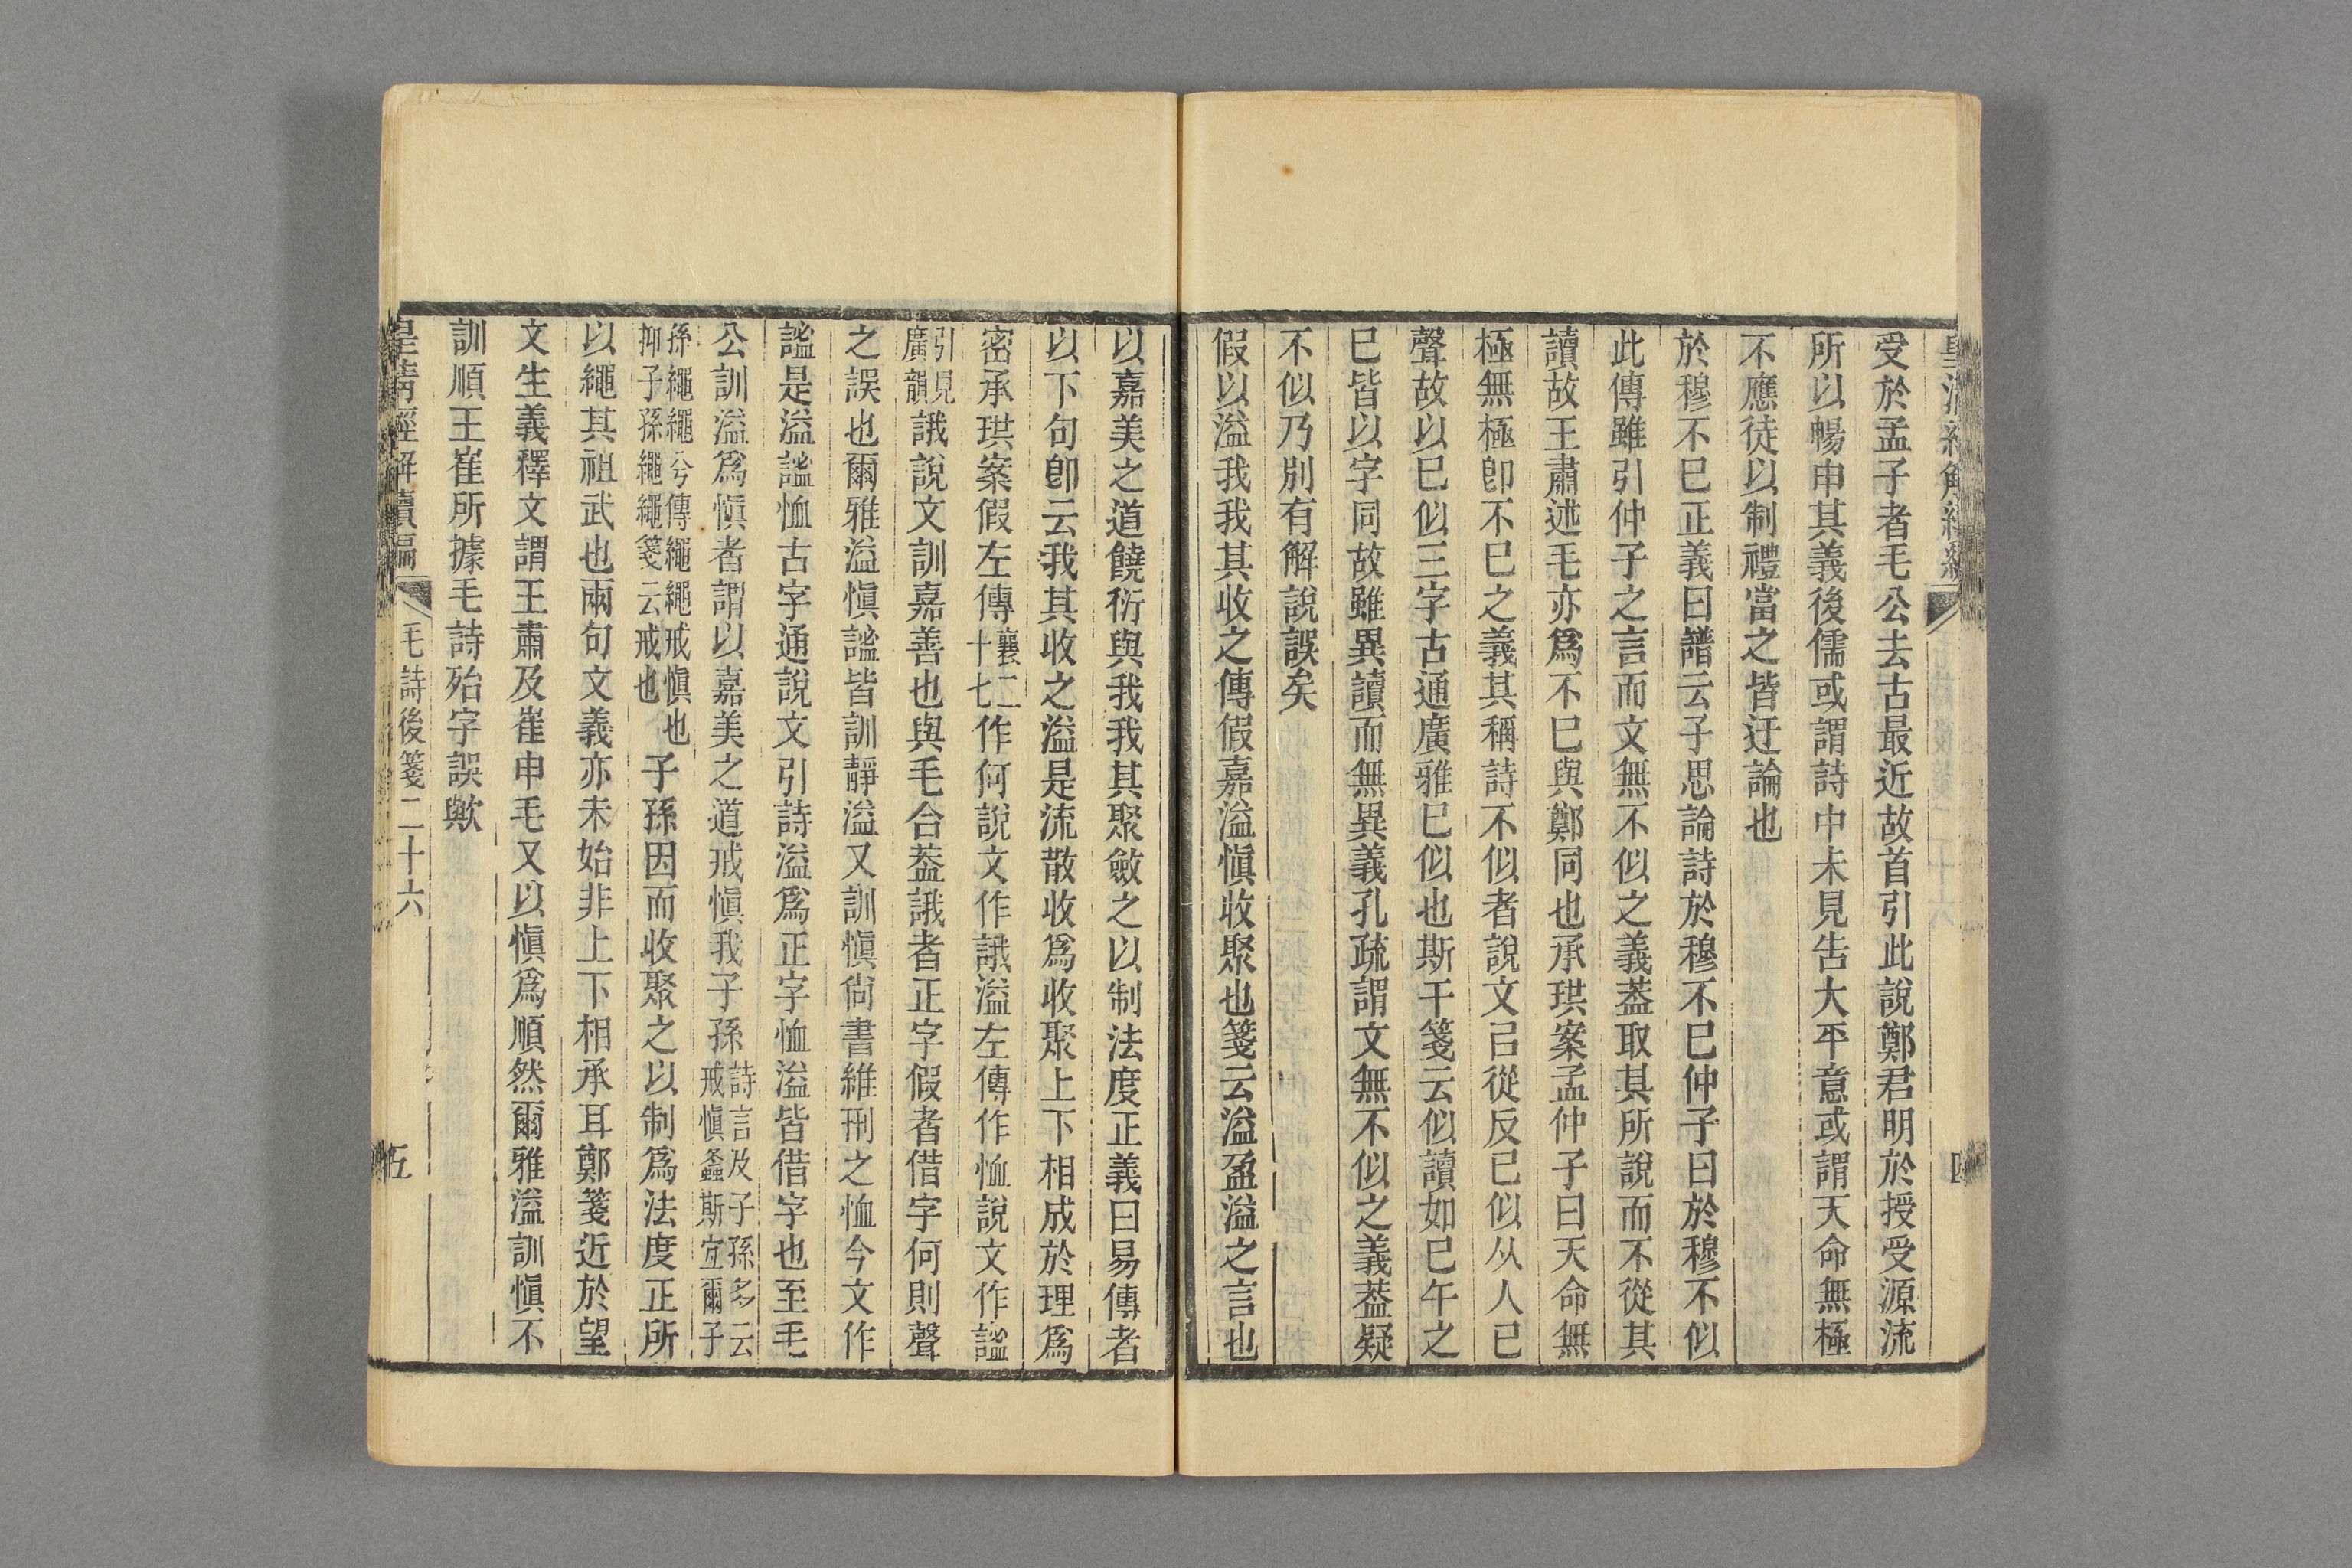 受於孟子者毛公去古最近故首引此說鄭君明於授受源流
所以暢申其義後儒或謂詩中未見告大平意或謂天命無極
不應徒以制禮當之皆迂論也
於穆不巳正義曰譜云子思論詩於穆不巳仲子曰於穆不似
此傳雖引仲子之言而文無不似之義葢取其所說而不從其
讀故王肅述毛亦爲不巳與鄭同也承珙案孟仲子曰天命無
極無極卽不巳之義其稱詩不似者說文㠯從反巳似从人㠯
聲故以巳似三字古通廣雅巳似也斯干箋云似讀如巳午之
巳皆以字同故雖異讀而無異義孔疏謂文無不似之義葢疑
不似乃別有解說誤矣
假以溢我我其收之傳假嘉溢愼收聚也箋云溢盈溢之言也
以嘉美之道饒衍與我我其聚斂之以制法度正義曰易傳者
以下句卽云我其收之溢是流散收爲收聚上下相成於理爲
密承珙案假左傳襄二十七作何說文作誐溢左傳作恤說文作謐
引見廣韻誐說文訓嘉善也與毛合葢誐者正字假者借字何則聲
之誤也爾雅溢愼謐皆訓靜溢又訓愼尙書維刑之恤今文作
謐是溢謐恤古字通說文引詩溢爲正字恤溢皆借字也至毛
公訓溢爲愼者謂以嘉美之道戒愼我子孫詩言及子孫多云戒愼螽斯宜爾子
孫繩繩兮傳繩繩戒愼也抑子孫繩繩箋云戒也子孫因而收聚之以制爲法度正所
以繩其祖武也兩句文義亦未始非上下相承耳鄭箋近於望
文生義釋文謂王肅及崔申毛又以愼爲順然爾雅溢訓愼不
訓順王崔所據毛詩殆字誤歟
皇淸經解續編 毛詩後箋二十六 五